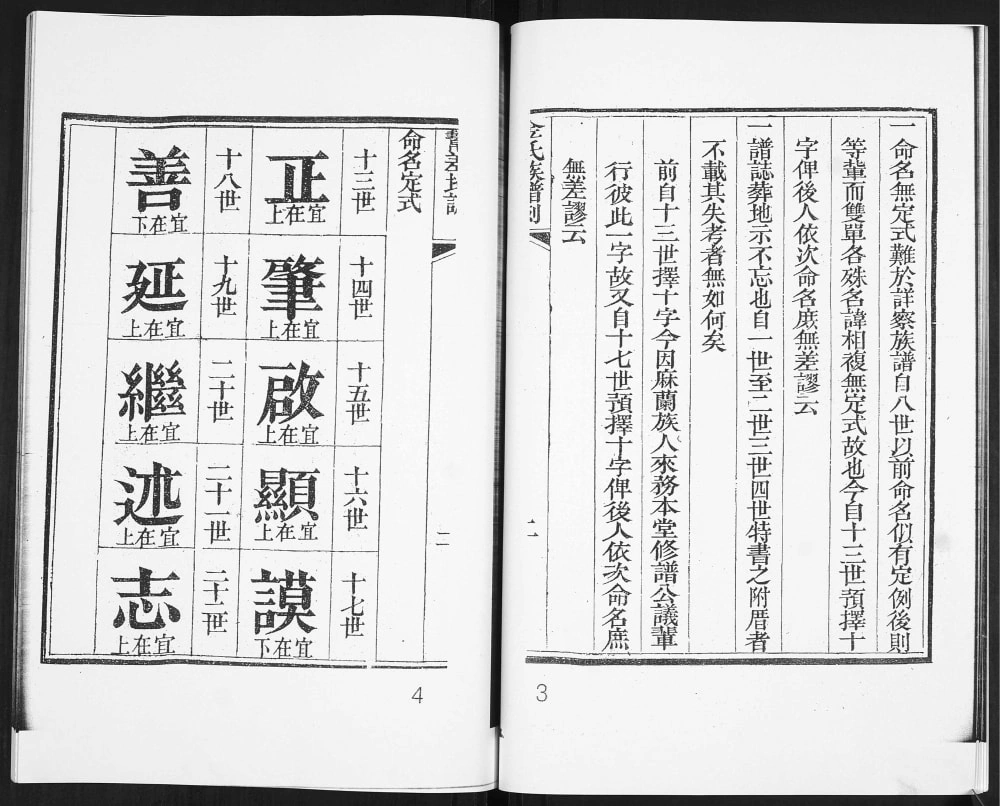 一命名無定式難於詳察族譜自八世以前命名似有定例後則
等輩而雙單各殊名諱相複無定式故也今自十三世預擇十
字俾後人依次命名庶無差謬云
一譜誌葬地示不忘也自一世至二世三世四世特書之附厝者
不載其失考者無如何矣
前自十三世擇十字今因麻蘭族人來務本堂修譜公議輩
行彼此一字故又自十七世預擇十字俾後人依次命名庶
無差謬云
氏族譜例
一
3
二
命名定式
十三世 十四世 十五世 十六世 十七世
正 宜在上 肇 宜在上 啟 宜在上 顯 宜在上 謨 宜在下
十八世 十九世 二十世 二十一世 二十二世
善 宜在下 延 宜在上 繼 宜在上 述 宜在上 志 宜在上
4